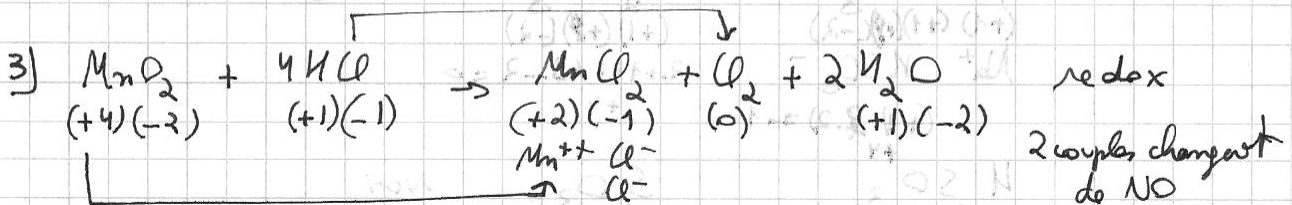 3) MnO₂ + 4HCl → MnCl₂ + Cl₂ + 2H₂O redox
(+4)(-2) (+1)(-1) (+2)(-1) (0) (+1)(-2)
Mn⁺⁺ Cl⁻ 2 couples changeant
Cl⁻ de NO